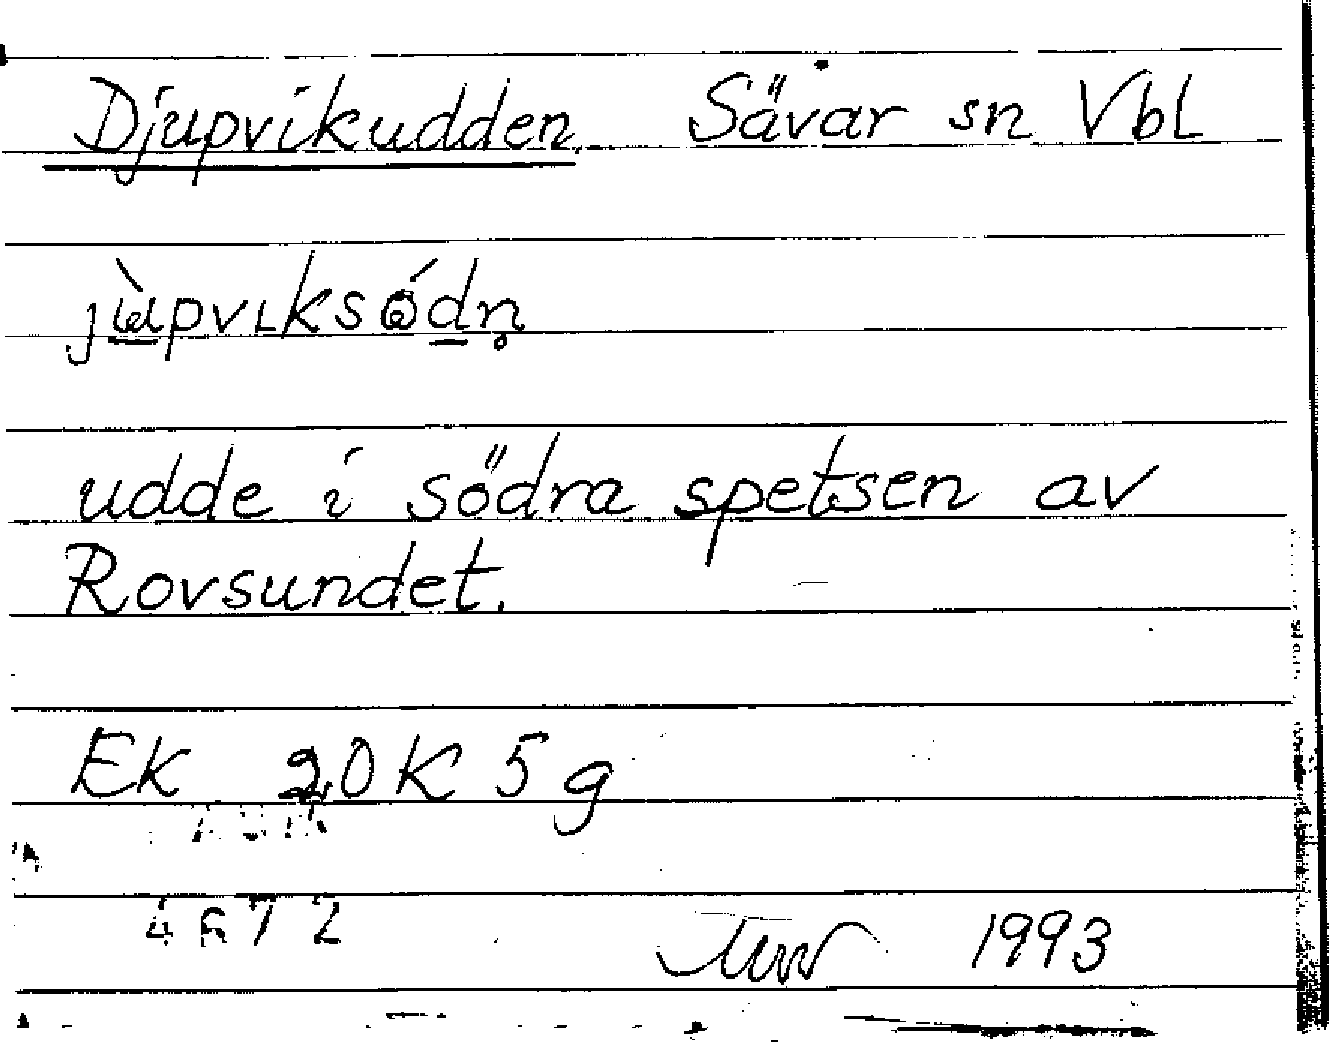 Djupvikudden Sävar sn Vbl
udde i södra spetsen av
Rovsundet.
Ek 20K 5g
4672
1993